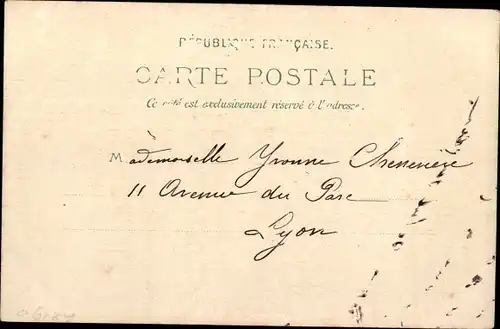 RÉPUBLIQUE FRANÇAISE.
CARTE POSTALE
Ce côté est exclusivement réservé à l'adresse.
Mademoiselle Yvonne Cheneviève
11 Avenue du Parc
Lyon